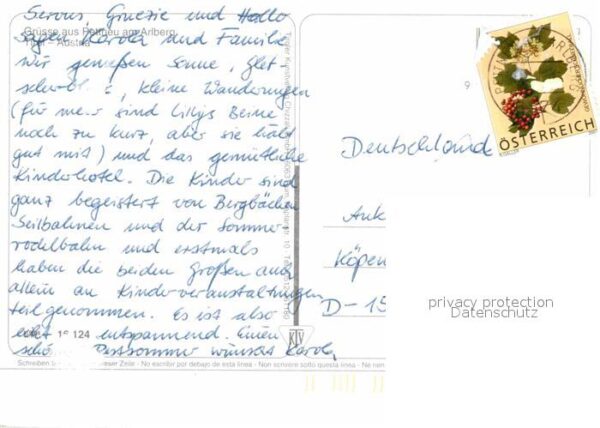 Servus, Gruezie und Hallo
sagen Karola und Familie
Grüsse aus Pettneu am Arlberg
Tirol - Austria
wir genießen Sonne,
kleine Wanderungen
(für mehr sind Lillys Beine
noch zu kurz, aber sie hält
gut mit) und das gemütliche
Kinderhotel. Die Kinder sind
ganz begeistert von Bergbächen
Seilbahnen und der Sommer
rodelbahn und erstmals
haben die beiden Großen auch
allein an Kinderveranstaltungen
teilgenommen. Es ist also
echt entspannend. Einen
schönen Restsommer wünscht Karola
124
KTV
Schreiben dieser Zeile - No escribir por debajo de esta línea - Non scrivere sotto questa linea - Ne
9
ÖSTERREICH
Deutschland
Ank
Köpen
D-15
privacy protection
Datenschutz